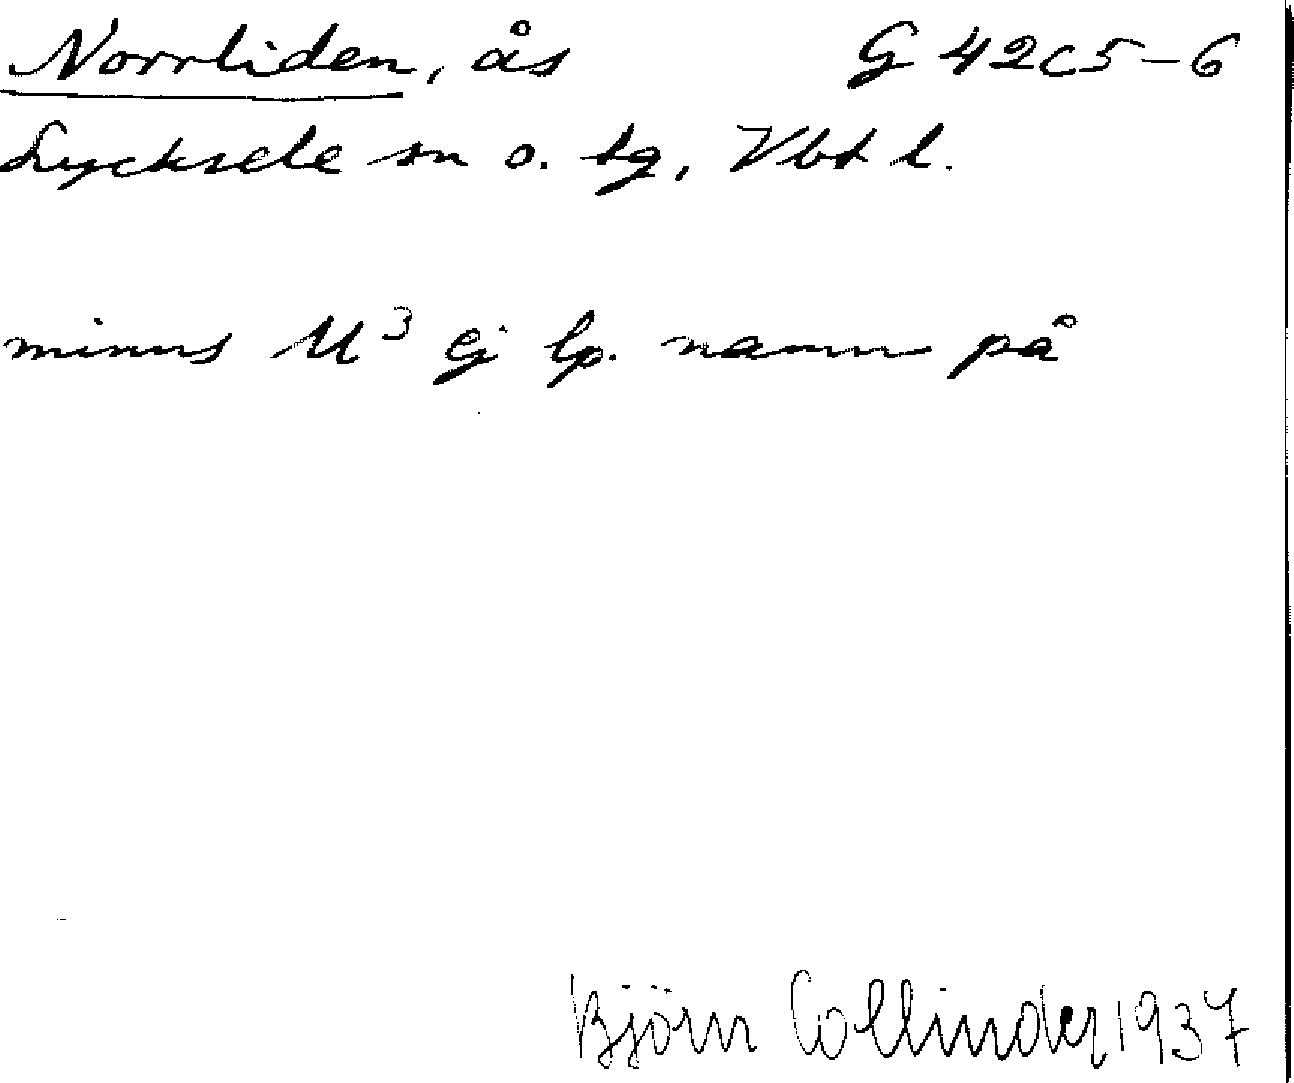 Norrliden, ås G 42c5-6
Lycksele sn o. tg, Vbt l.
minus M³ ej lp. namn på
Björn Collinder 1937